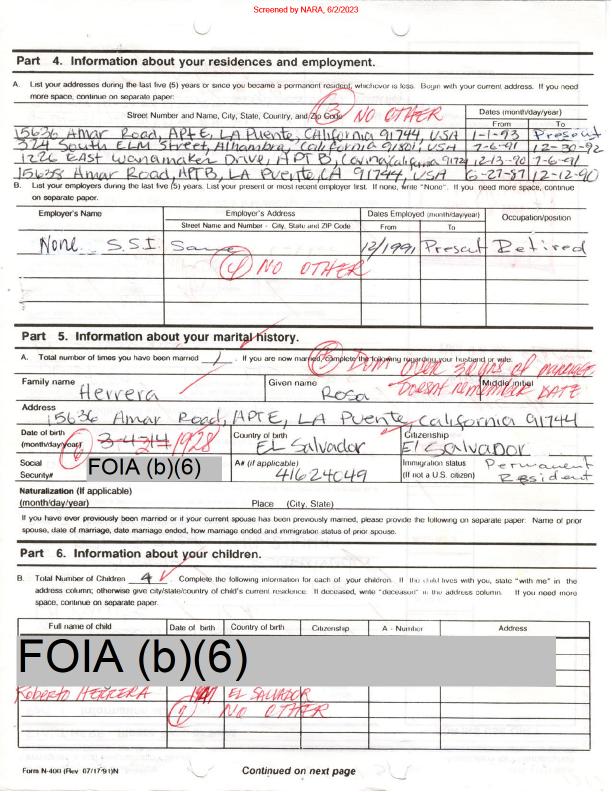 Screened by NARA, 6/2/2023
Part 4. Information about your residences and employment.
A. List your addresses during the last five (5) years or since you became a permanent resident, whichever is less. Begin with your current address. If you need
more space, continue on separate paper:
Street Number and Name, City, State, Country, and Zip Code Dates (month/day/year)
3 NO OTHER
From To
15636 Amar Road, APt E, LA Puente, CAlifornia 91744, USA 1-1-93 Present
324 South ELM Street, Alhambra, California 91801, USA 7-6-91 12-30-92
1226 EAST Wanamaker Drive, APT B, Covina California 91724 12-13-90 7-6-91
15638 Amar Road, APTB, LA Puente, CA 91744, USA 6-27-87 12-12-90
B. List your employers during the last five (5) years. List your present or most recent employer first. If none, write "None". If you need more space, continue
on separate paper.
Employer's Name Employer's Address Dates Employed (month/day/year) Occupation/position
Street Name and Number - City, State and ZIP Code From To
None S.S.I Same 12/1991 Present Retired
4 NO OTHER
Part 5. Information about your marital history.
A. Total number of times you have been married 1 . If you are now married, complete the following regarding your husband or wife.
5 Dom over 30 yrs of marriage
Doesnt remember DATE
Family name Herrera Given name Rosa Middle initial
Address
15636 Amar Road, APTE, LA Puente, California 91744
Date of birth (month/day/year) 3-4-314 1928 Country of birth EL Salvador Citizenship El Salvador
6
Social Security# FOIA (b)(6) A# (if applicable) 41624049 Immigration status (If not a U.S. citizen) Permanent Resident
Naturalization (If applicable)
(month/day/year) Place (City, State)
If you have ever previously been married or if your current spouse has been previously married, please provide the following on separate paper: Name of prior
spouse, date of marriage, date marriage ended, how marriage ended and immigration status of prior spouse.
Part 6. Information about your children.
B. Total Number of Children 4 . Complete the following information for each of your children. If the child lives with you, state "with me" in the
address column; otherwise give city/state/country of child's current residence. If deceased, write "deceased" in the address column. If you need more
space, continue on separate paper.
Full name of child Date of birth Country of birth Citizenship A - Number Address
FOIA (b)(6)
Roberto HERRERA 1947 EL SALVADOR
7 NO OTHER
Form N-400 (Rev 07/17/91)N Continued on next page